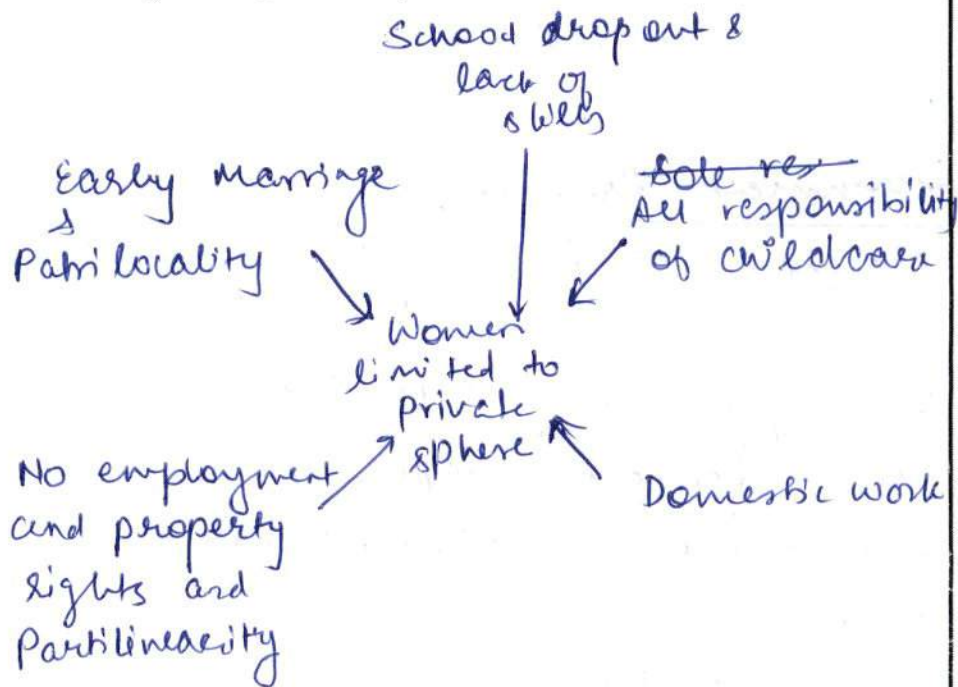 School drop out &
lack of
skills
Early Marriage
&
Patrilocality
Sole res
All responsibility
of childcare
Women
limited to
private
sphere
No employment
and property
rights and
Partilinearity
Domestic work